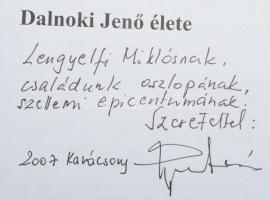 Dalnoki Jenő élete
Lengyelfi Miklósnak,
családunk oszlopának,
szellemi epicentrumának.
Szeretettel:
2007 Karácsony